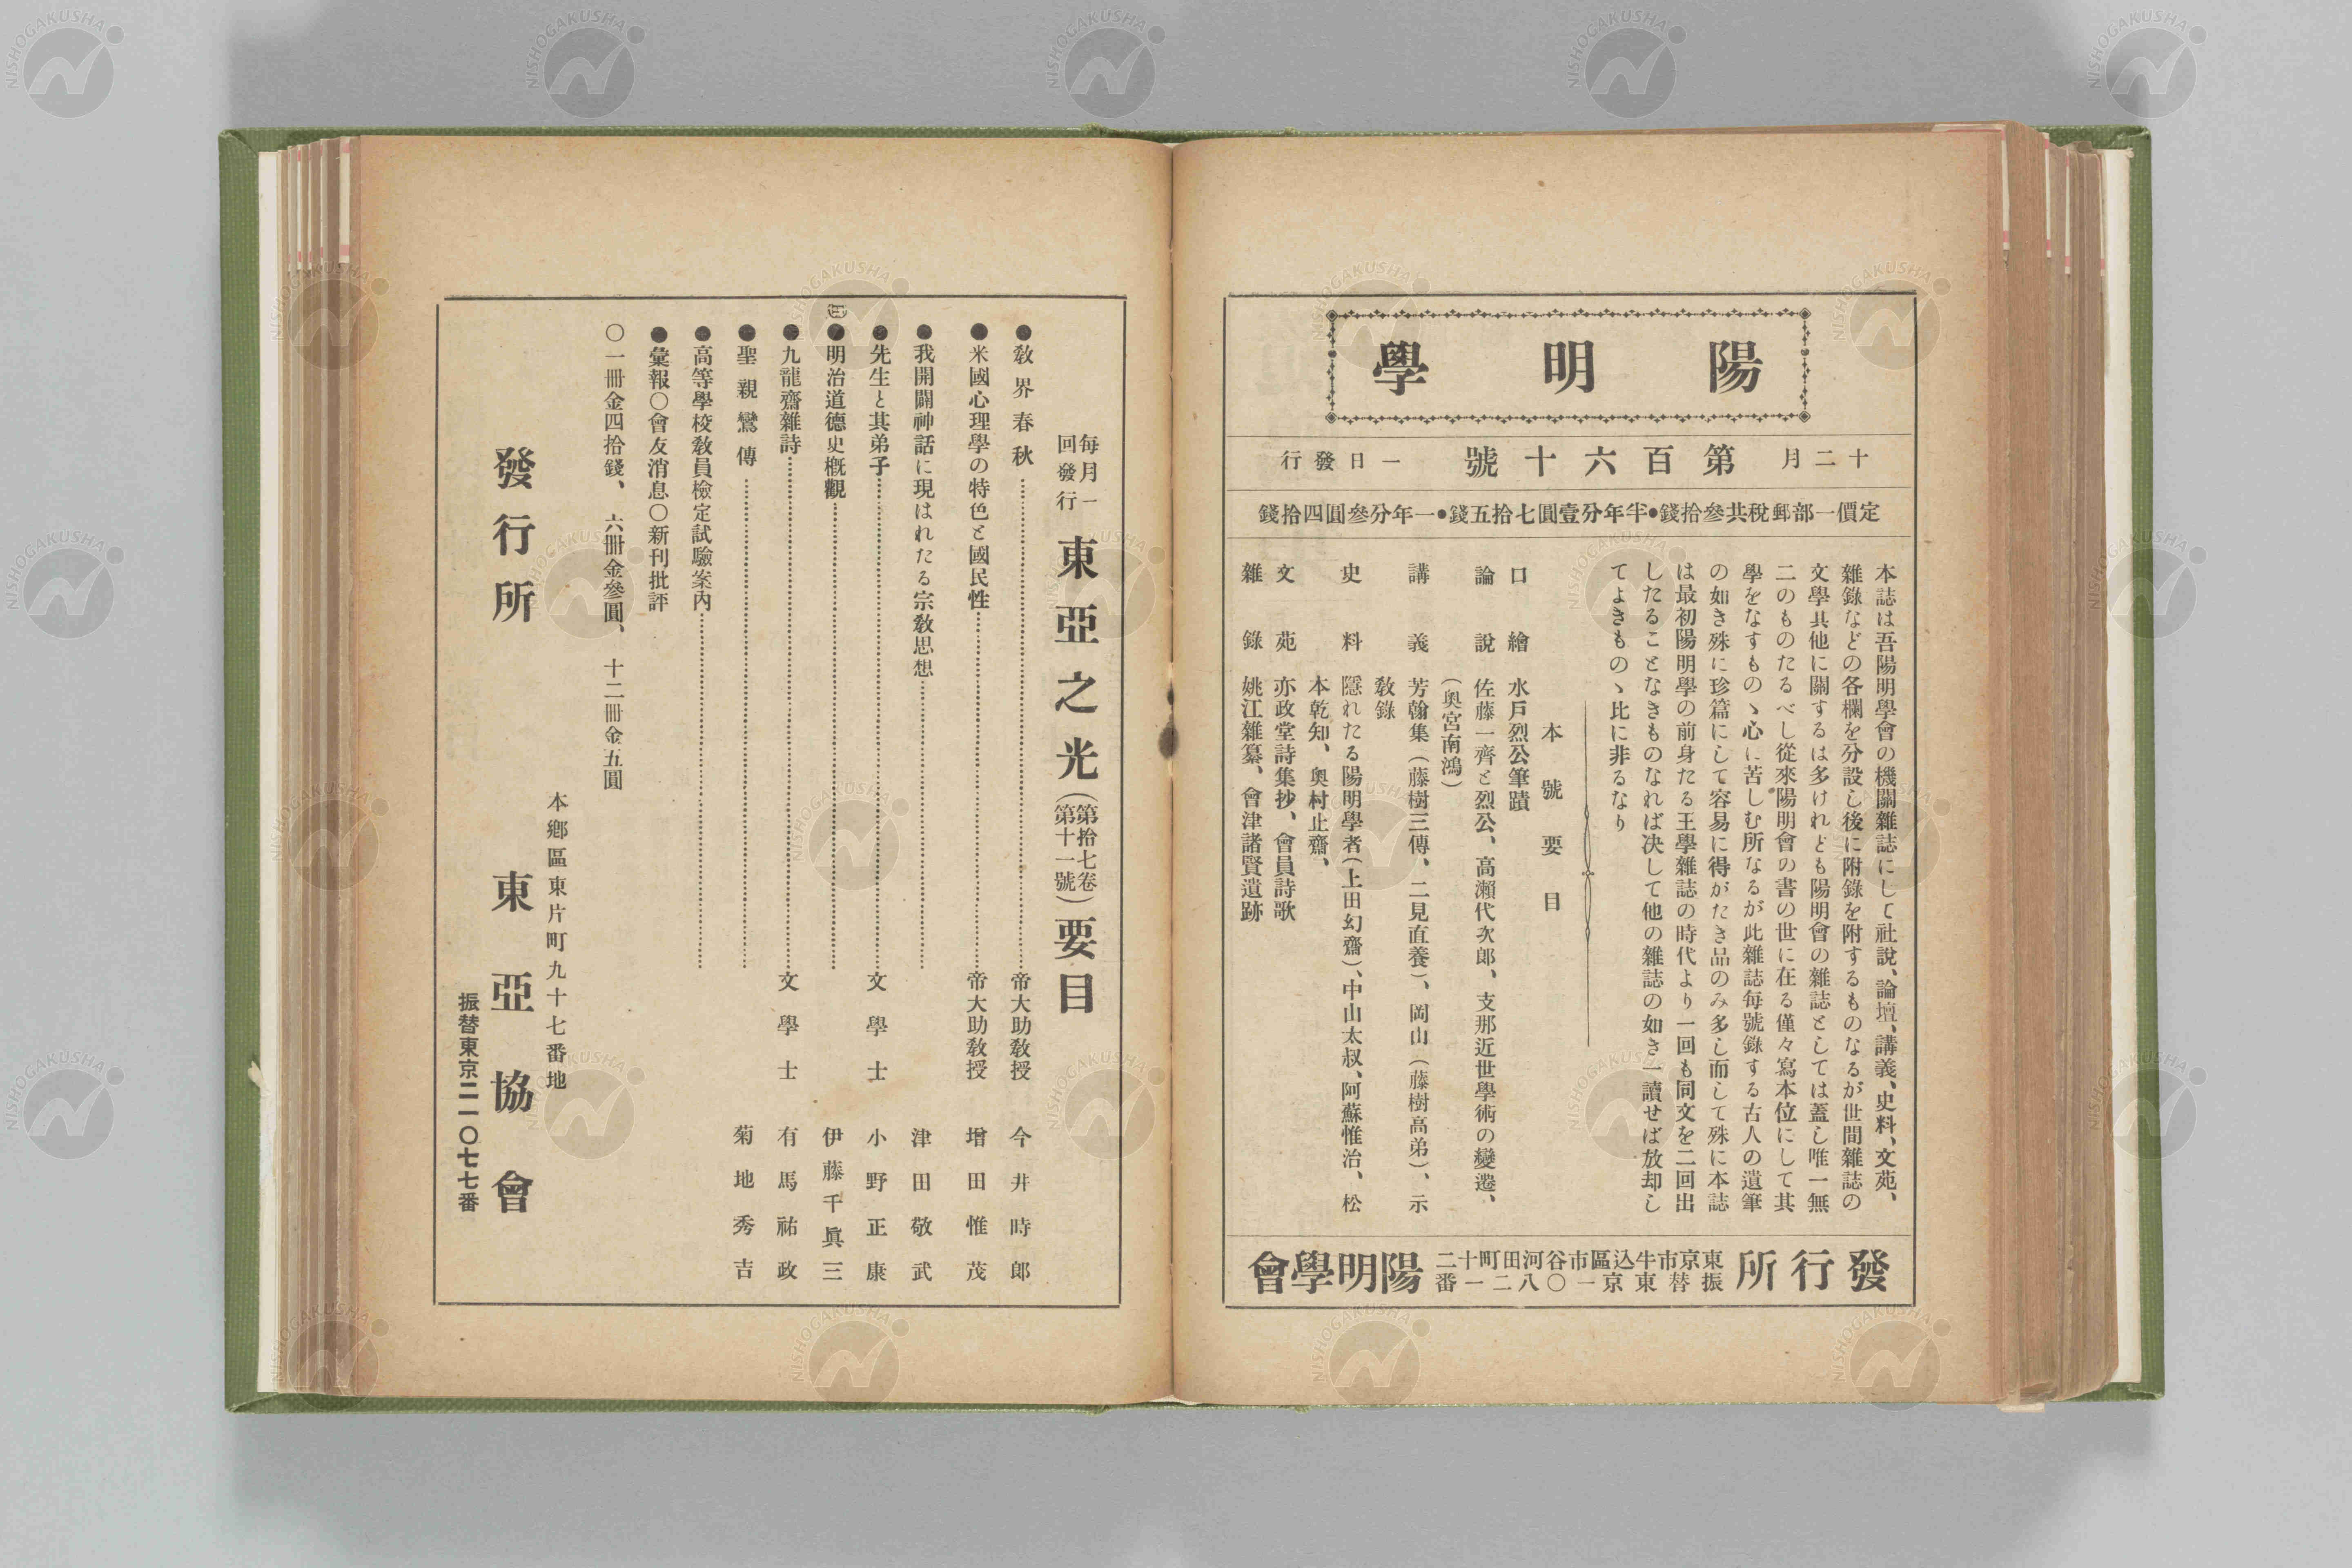 陽明學
十二月 第百六十號 一日發行
定價一部郵稅共參拾錢●半年分壹圓七拾五錢●一年分參圓四拾錢
本誌は吾陽明學會の機關雜誌にして社說、論壇、講義、史料、文苑、
雜錄などの各欄を分設し後に附錄を附するものなるが世間雜誌の
文學其他に關するは多けれども陽明會の雜誌としては蓋し唯一無
二のものたるべし從來陽明會の書の世に在る僅々寫本位にして其
學をなすものゝ心に苦しむ所なるが此雜誌每號錄する古人の遺筆
の如き殊に珍篇にして容易に得がたき品のみ多し而して殊に本誌
は最初陽明學の前身たる王學雜誌の時代より一回も同文を二回出
したることなきものなれば決して他の雜誌の如き一讀せば放却し
てよきものゝ比に非るなり
本號要目
口繪 水戶烈公筆蹟
論說 佐藤一齊と烈公、高瀨代次郎、支那近世學術の變遷、
(奧宮南鴻)
講義 芳翰集(藤樹三傳、二見直養)、岡山(藤樹高弟)、示
敎錄
史料 隱れたる陽明學者(上田幻齋)、中山太叔、阿蘇惟治、松
本乾知、奧村止齋、
文苑 亦政堂詩集抄、會員詩歌
雜錄 姚江雜纂、會津諸賢遺跡
發行所 東京市牛込區市谷河田町十二 陽明學會
振替東京一〇八二一番
每月一回發行 東亞之光(第拾七卷第十一號)要目
●敎界春秋……帝大助敎授 今井時郎
●米國心理學の特色と國民性……帝大助敎授 增田惟茂
●我開闢神話に現はれたる宗敎思想……津田敬武
●先生と其弟子……文學士 小野正康
●明治道德史槪觀……伊藤千眞三
●九龍齋雜詩……文學士 有馬祐政
●聖親鸞傳……菊地秀吉
●高等學校敎員檢定試驗案內……
●彙報○會友消息○新刊批評
○一冊金四拾錢、六冊金參圓、十二冊金五圓
本鄕區東片町九十七番地
發行所 東亞協會
振替東京二一〇七七番
NISHOGAKUSHA